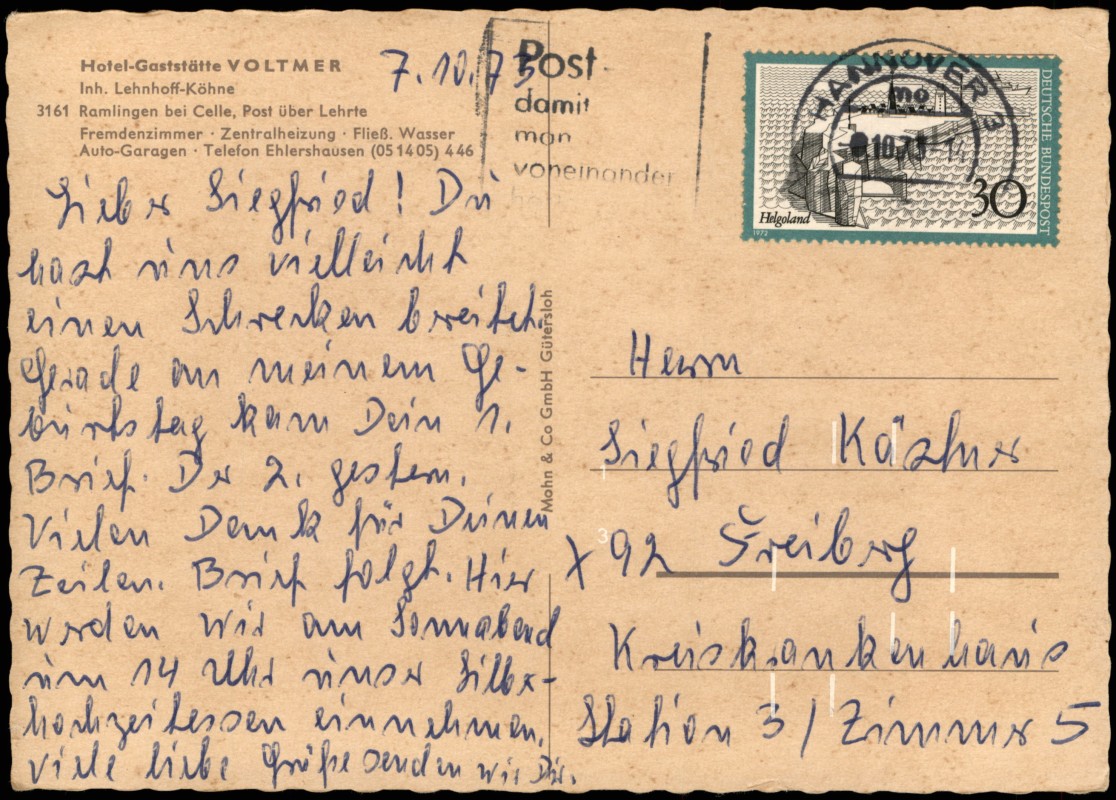 Hotel-Gaststätte VOLTMER
Inh. Lehnhoff-Köhne
3161 Ramlingen bei Celle, Post über Lehrte
Fremdenzimmer · Zentralheizung · Fließ. Wasser
Auto-Garagen · Telefon Ehlershausen (05 14 05) 4 46
7.10.73
Lieber Siegfried! Du
hast uns vielleicht
einen Schrecken bereitet.
Gerade an meinem Ge-
burtstag kam Dein 1.
Brief. Der 2. gestern.
Vielen Dank für Deinen
Zeilen. Brief folgt. Hier
werden wir am Sonnabend
um 14 Uhr unser Silber-
hochzeitessen einnehmen.
Viele liebe Grüße senden wir Dir.
Mohn & Co GmbH Gütersloh
Post
damit
man
voneinander
HANNOVER
mo
10.73
DEUTSCHE BUNDESPOST
30
Helgoland
1972
Herrn
Siegfried Kästner
X 92 Freiberg
3
Kreiskrankenhaus
Station 3 / Zimmer 5